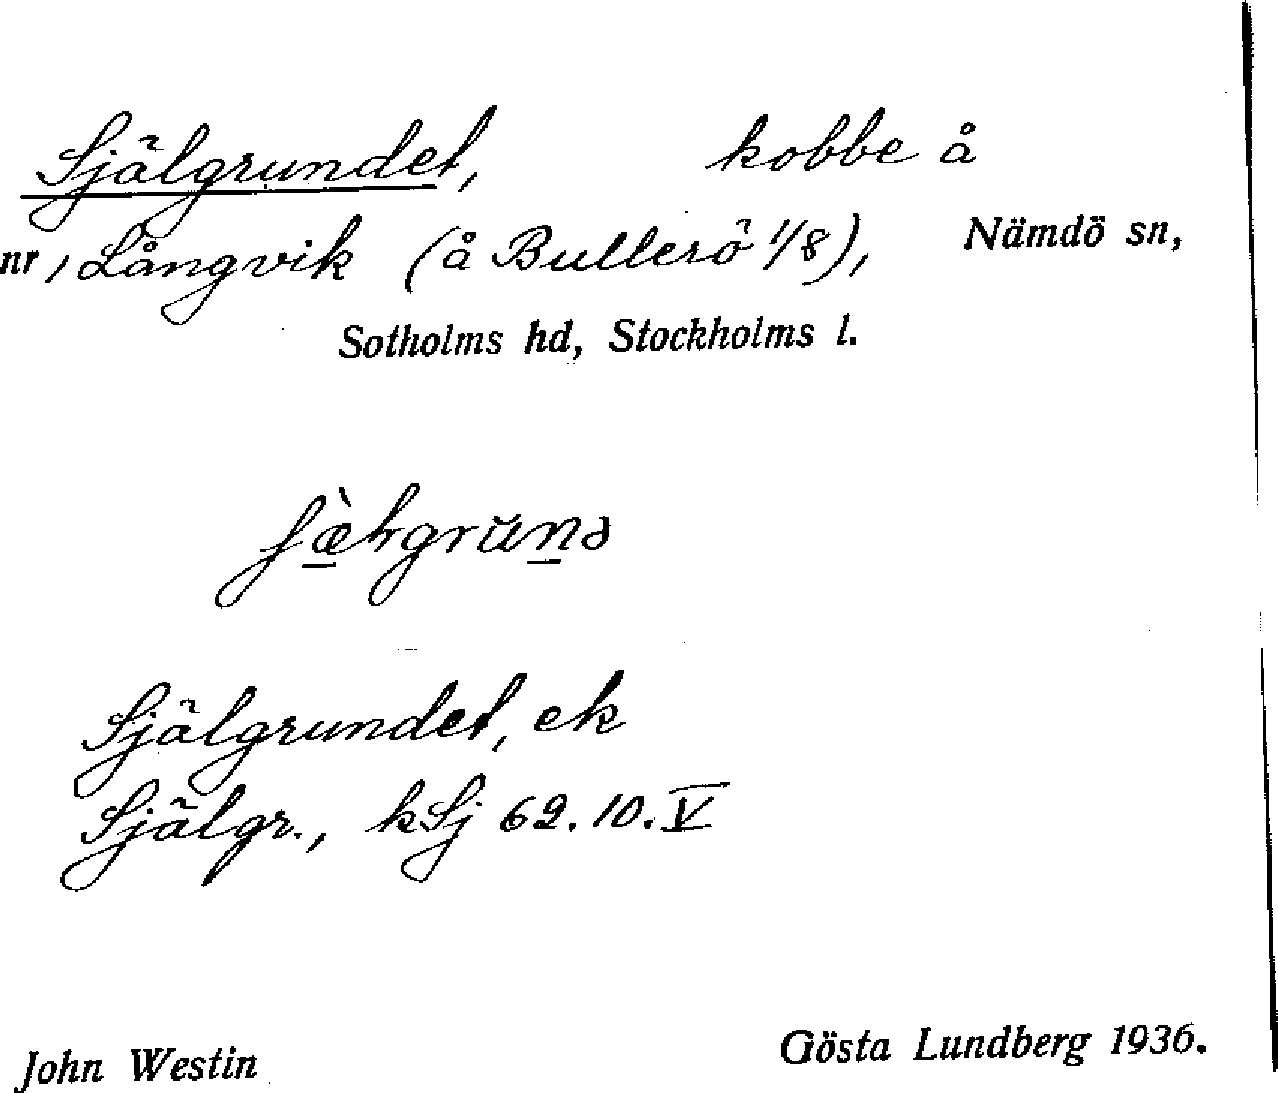 Själgrundet, kobbe å
nr, Långvik (å Bullerö 1/8), Nämdö sn,
Sotholms hd, Stockholms l.
Själgrundet, ek
Själgr., kSj 62.10.V
John Westin Gösta Lundberg 1936.